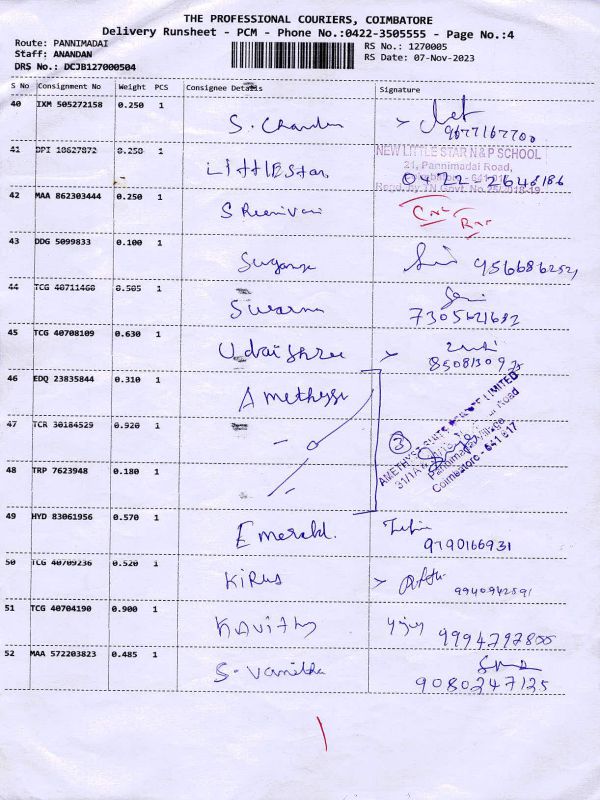 THE PROFESSIONAL COURIERS, COIMBATORE
Delivery Runsheet - PCM - Phone No.:0422-3505555 - Page No.:4
Route: PANNIMADAI
Staff: ANANDAN
DRS No.: DCJB127000504
RS No.: 1270005
RS Date: 07-Nov-2023
S No Consignment No Weight PCS Consignee Details Signature
40 IXM 505272158 0.250 1
S. Chandru
9677167700
41 DPI 10627872 0.250 1
LittlEStar
NEW LITTLE STAR N & P SCHOOL
21, Pannimadai Road,
0422-2648186
42 MAA 862303444 0.250 1
S Reenivasi
43 DDG 5099833 0.100 1
Suganya
44 TCG 40711460 0.505 1
Siwarna
7305621682
45 TCG 40708109 0.630 1
Udaishree
46 EDQ 23835844 0.310 1
Amethyst
47 TCR 30184529 0.920 1
3
48 TRP 7623948 0.180 1
Coimbatore - 641 017
49 HYD 83061956 0.570 1
Emerald.
9790166931
50 TCG 40709236 0.520 1
KiRUS
9940942591
51 TCG 40704190 0.900 1
KAvithy
9994797855
52 MAA 572203823 0.485 1
S. Vanitha
9080247125